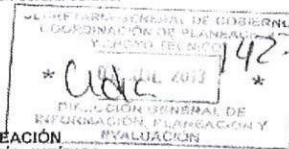 SECRETARIA GENERAL DE GOBIERNO
COORDINACIÓN DE PLANEACIÓN
Y APOYO TECNICO
142-
* *
2013
DIRECCIÓN GENERAL DE
INFORMACIÓN, PLANEACIÓN Y
EVALUACIÓN
EACIÓN